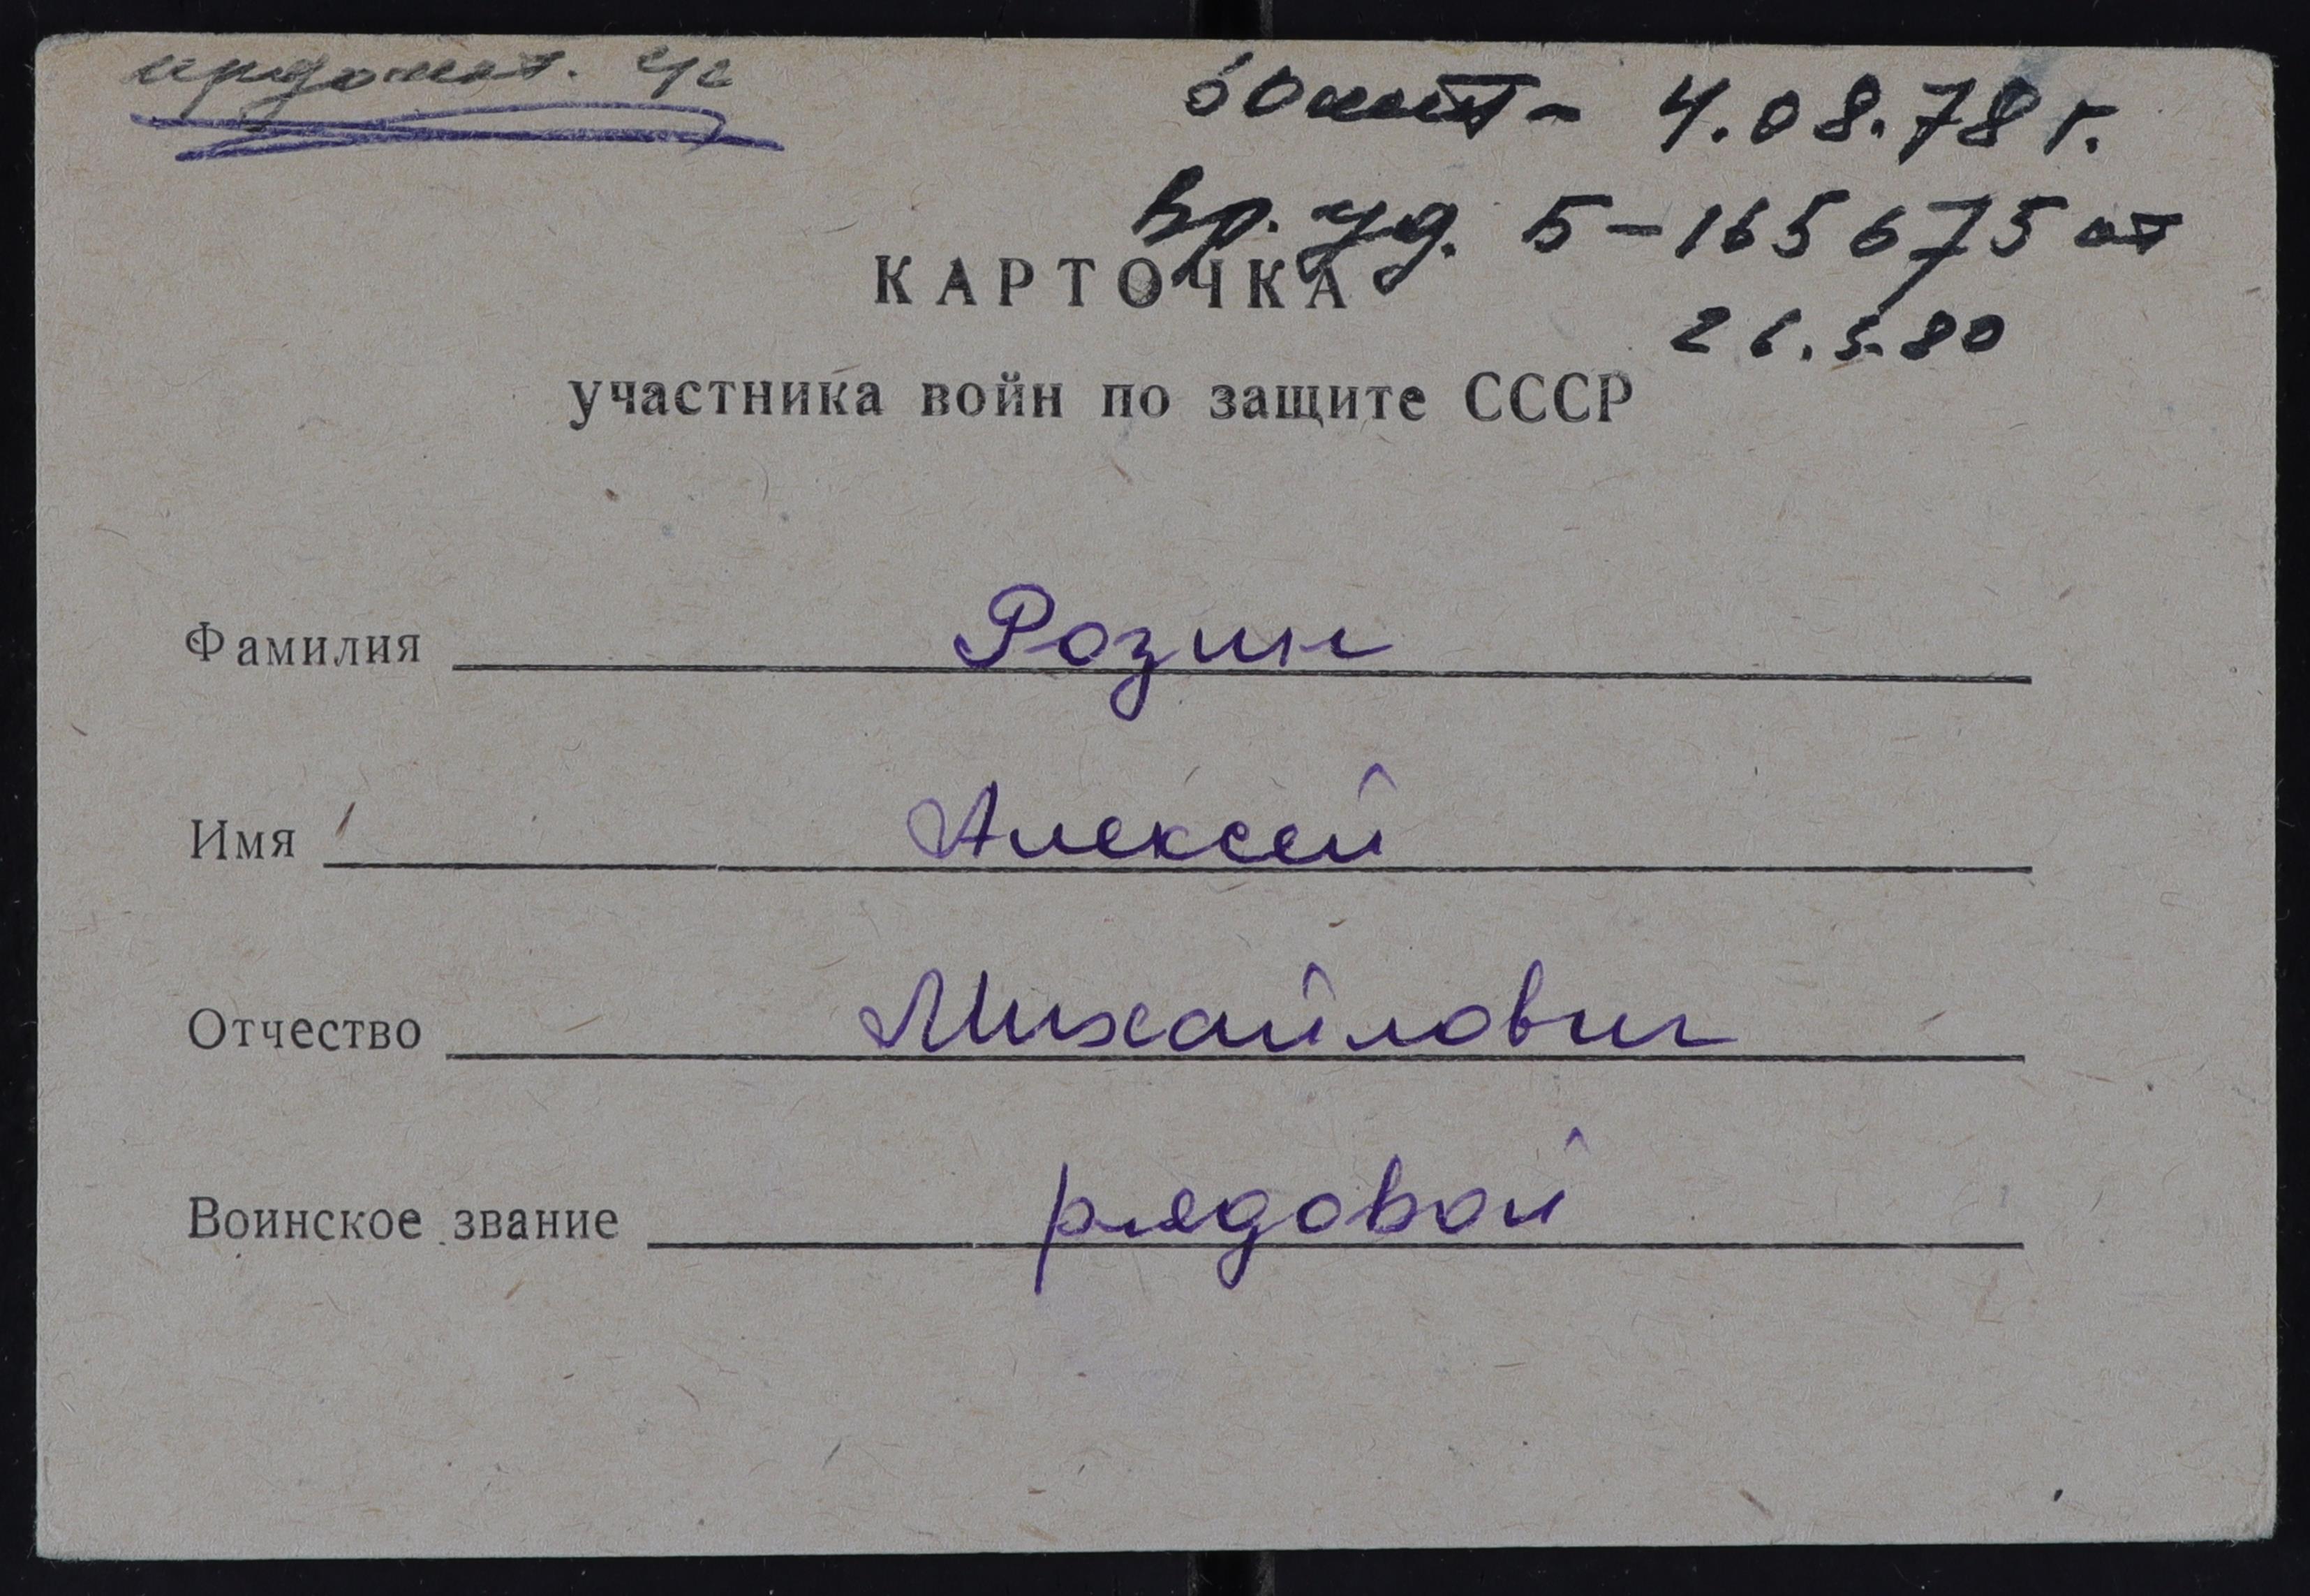 60 лет - 4.08.78 г.
Вр. уд. Б-165675 от
26.5.80
КАРТОЧКА
участника войн по защите СССР
Фамилия Розин
Имя Алексей
Отчество Михайлович
Воинское звание рядовой